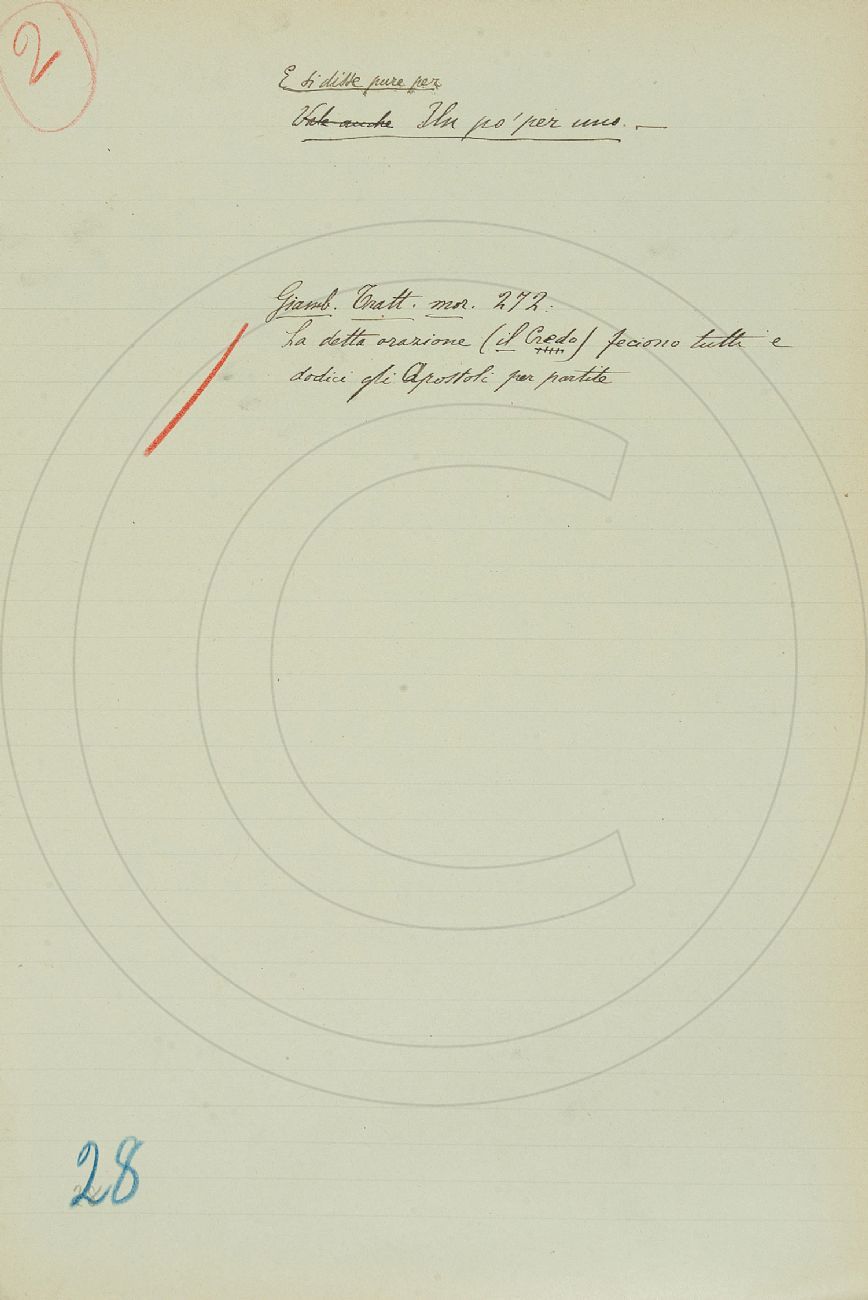 2
E si disse pure per
Vale anche Un po' per uno. —
Giamb. Tratt. mor. 272:
La detta orazione (il Credo) feciono tutti e
dodici gli Apostoli per partite
28